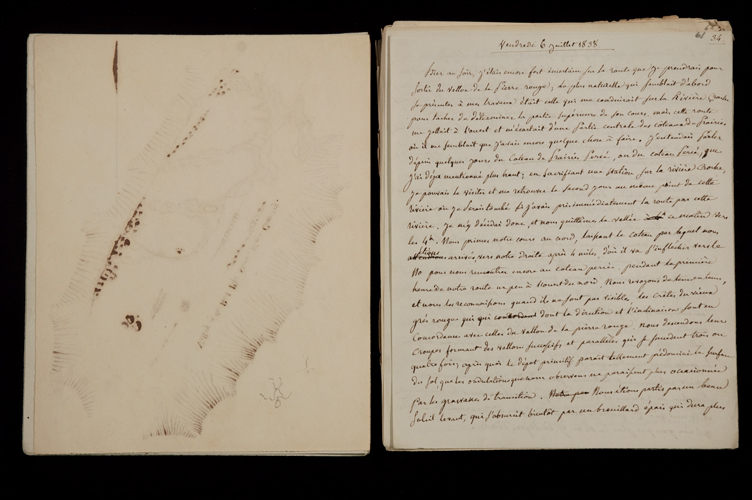 34
Vendredi 6 juillet 1838
Hier au soir, j'étais encore fort incertain sur la route que je prendrais pour
sortir du vallon de la Pierre rouge; la plus naturelle qui semblait d'abord
se présenter à mes travaux était celle qui me conduirait sur la Rivière
pour tacher de déterminer la partie supérieure de son cours; mais cette route
me jettait à l'ouest et m'écartait d'une partie centrale du coteau des Prairies
où il me semblait que j'avais encore quelque chose à faire. J'entendais parler
depuis quelques jours du Coteau de Prairie Percé, ou du coteau Percé, que
j'ai déjà mentionné plus haut; en sacrifiant une station sur la rivière Croche,
je pouvais le visiter et me retrouver le second jour au même point de cette
rivière où je serais tombé si j'avais pris immédiatement la route par cette
rivière. Je m'y décidai donc, et nous quittâmes la vallée ce matin vers
les 4h. Nous primes notre cours au nord, laissant le coteau par lequel nous
étions arrivés vers notre droite après 4 milles, d'où il va s'infléchir vers le
No pour nous rencontrer encore au coteau percé. pendant la première
heure de notre route un peu à l'ouest du nord. Nous
et nous les reconnaissons quand ils ne sont pas visibles, les crêtes du vieux
grès rouge qui dont la direction et l'inclinaison sont en
concordance avec celles du vallon de la pierre rouge. Nous descendons leurs
croupes formant des vallons successifs et parallèles qui se succèdent trois ou
quatre fois; après quoi le dépôt primitif parait tellement prédominer la surface
du sol, que les ondulations que nous observons ne paraissent plus occasionnées
par les grauwackes de transition. Nous étions partis par un beau
soleil levant, qui s'obscurcit bientôt par un brouillard épais qui dura plus